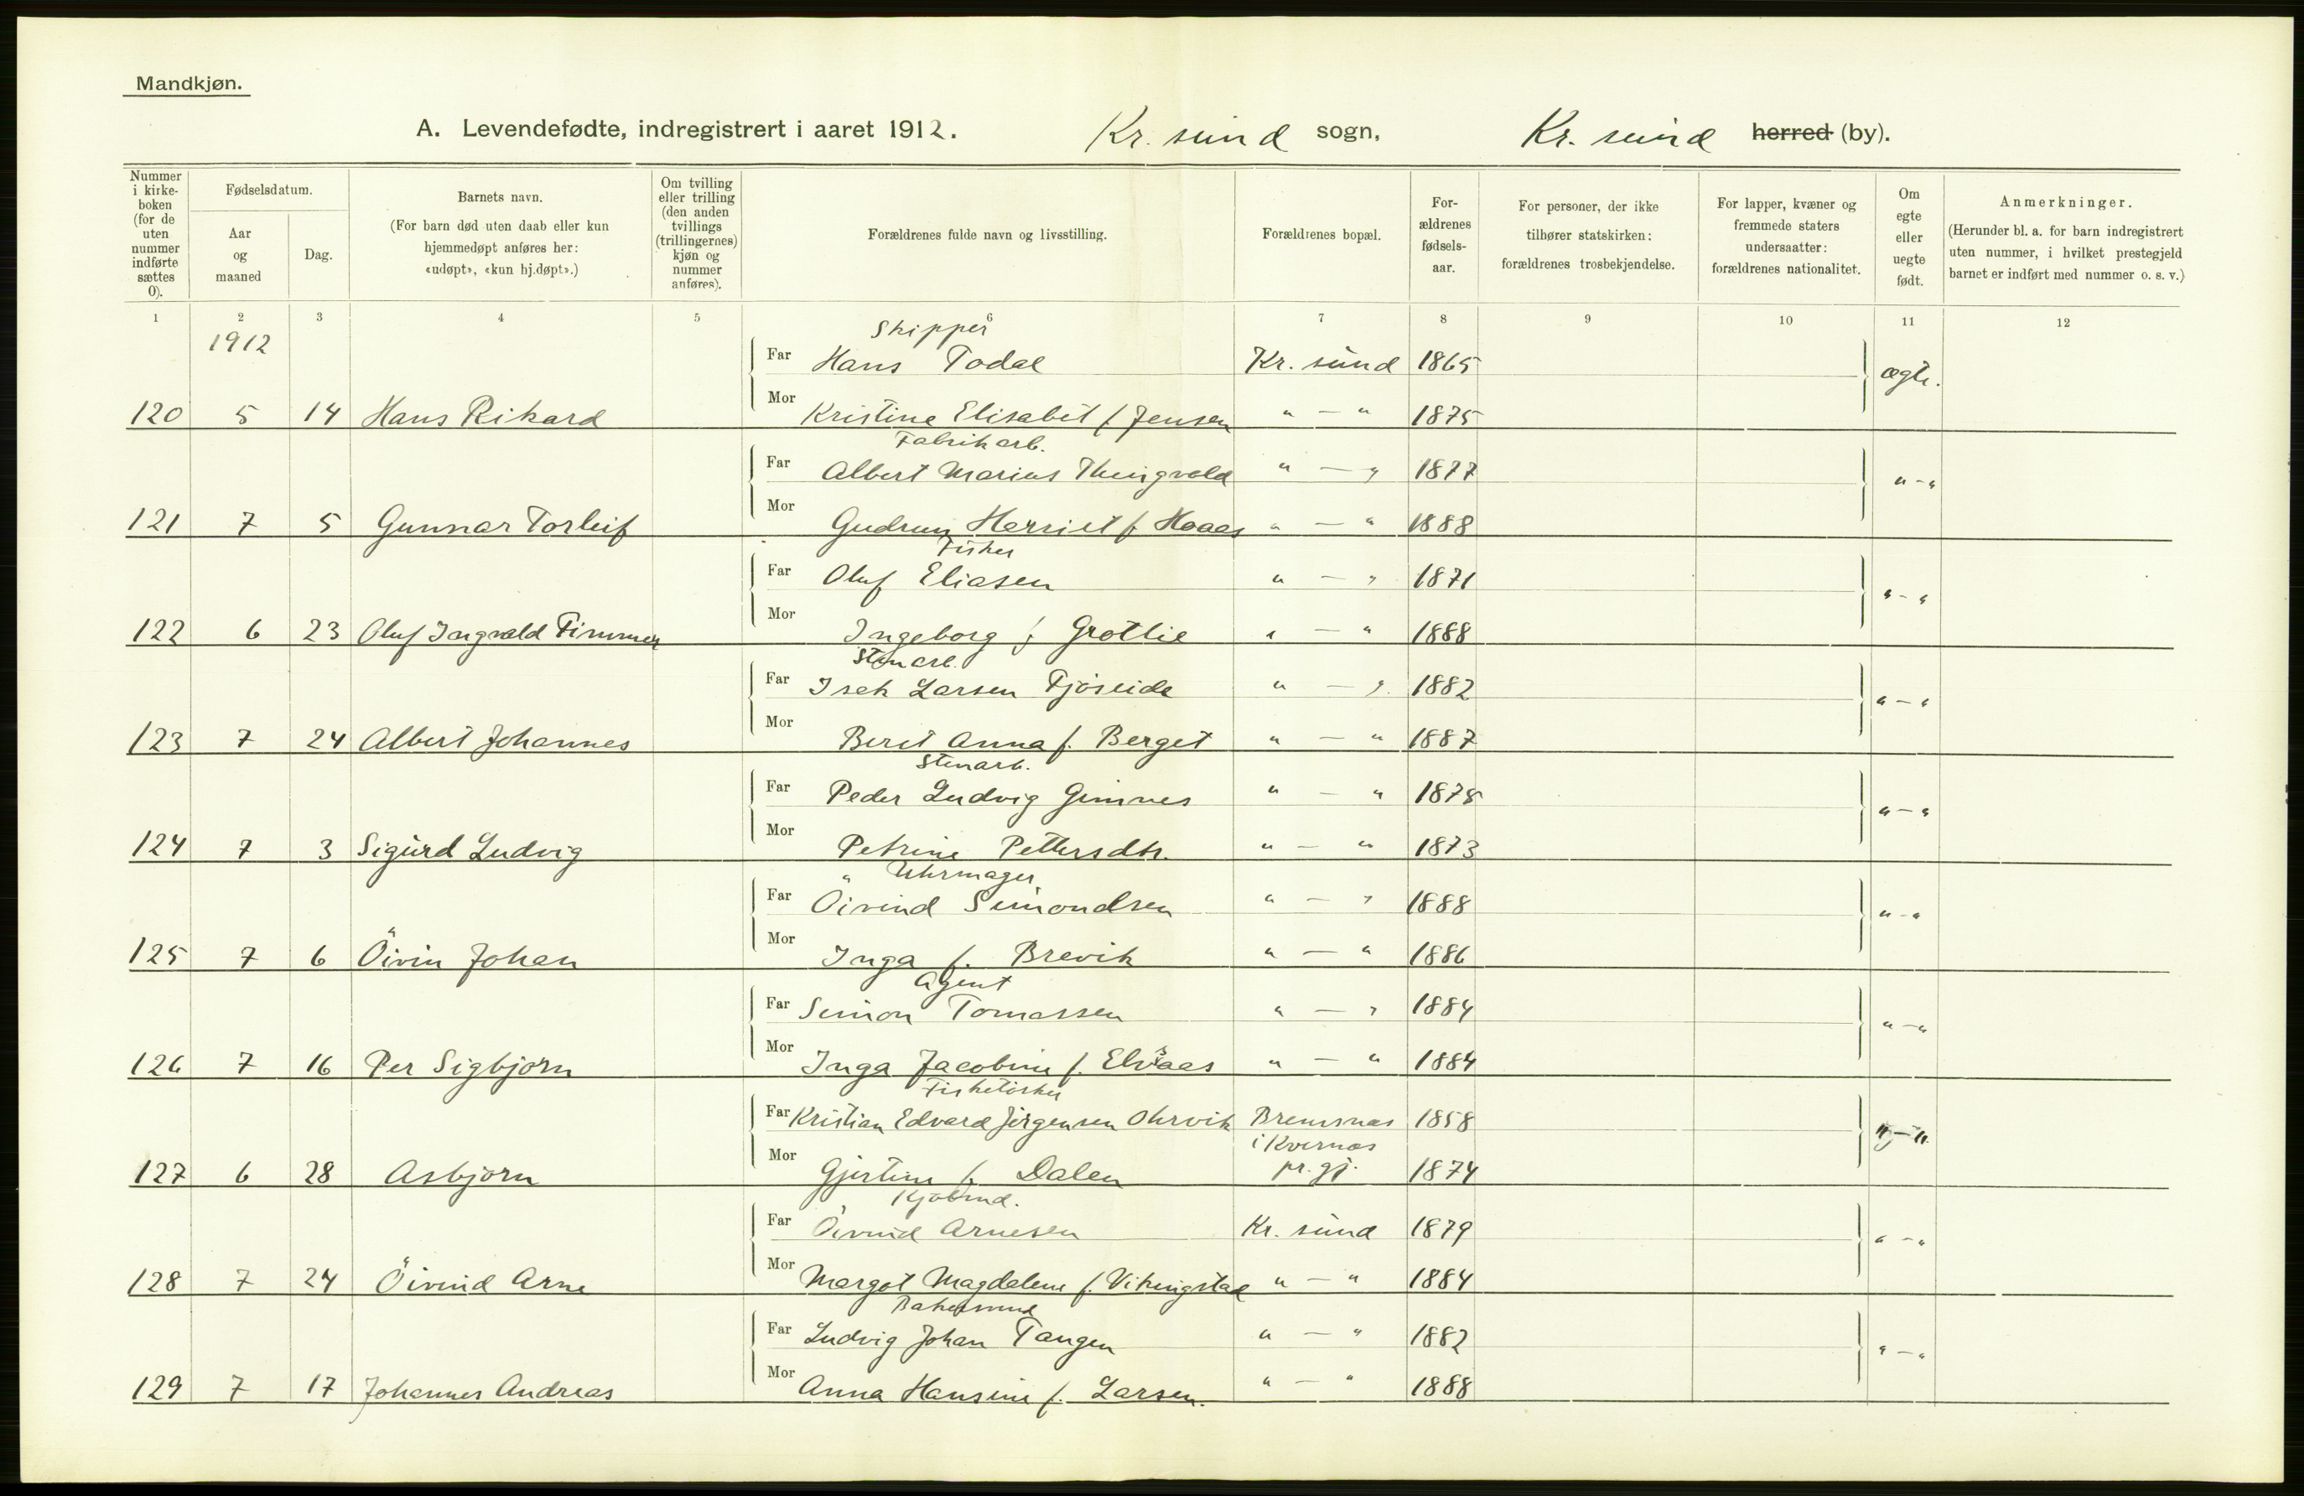 Mandkjøn.
A. Levendefødte, indregistrert i aaret 1912. Kr. sund sogn, Kr. sund herred (by).
Nummer i kirke-boken (for de uten nummer indførte sættes 0).
Fødselsdatum.
Aar og maaned
Dag.
Barnets navn.
(For barn død uten daab eller kun hjemmedøpt anføres her: «udøpt», «kun hj.døpt».)
Om tvilling eller trilling (den anden tvillings (trillingernes) kjøn og nummer anføres).
Forældrenes fulde navn og livsstilling.
Forældrenes bopæl.
For-ældrenes fødsels-aar.
For personer, der ikke tilhører statskirken: forældrenes trosbekjendelse.
For lapper, kvæner og fremmede staters undersaatter: forældrenes nationalitet.
Om egte eller uegte født.
Anmerkninger.
(Herunder bl. a. for barn indregistrert uten nummer, i hvilket prestegjeld barnet er indført med nummer o. s. v.)
1 2 3 4 5 6 7 8 9 10 11 12
1912
Skipper
Far Hans Todal Kr. sund 1865 ægte.
120 5 14 Hans Rikard Mor Kristine Elisabet f. Jensen " — " 1875
Fabrikarb.
Far Albert Marius Thingvold " — " 1877 " - "
121 7 5 Gunnar Torleif Mor Gudrun Harriet f. Haaes " — " 1888
Fisker
Far Oluf Eliasen " — " 1871 " - "
122 6 23 Oluf Ingvald Fimmer Mor Ingeborg f. Grotlie " — " 1888
Stenarb.
Far Isak Larsen Fjöseide " — " 1882 " - "
123 7 24 Albert Johannes Mor Beret Anna f. Berget " — " 1887
Stenarb.
Far Peder Ludvig Gimnes " — " 1875 " - "
124 7 3 Sigurd Ludvig Mor Petrine Pettersdtr. " — " 1873
Uhrmager
Far Öivind Simondsen " — " 1888 " - "
125 7 6 Öivin Johan Mor Inga f. Brevik " — " 1886
Agent
Far Simon Tomassen " — " 1884 " - "
126 7 16 Per Sigbjørn Mor Inga Jacobine f. Elvsaas " — " 1884
Fisketörker
Far Kristian Edvard Jörgensen Ohrvik Bremsnes 1858 " - "
i Kvernes
127 6 28 Asbjørn Mor Gjertine f. Dalen pr.gj. 1874
Kjöbmd.
Far Öivind Arnesen Kr. sund 1879 " - "
128 7 24 Öivind Arne Mor Margot Magdalene f. Vikingstad " — " 1884
Bakersvend
Far Ludvig Johan Tangen " — " 1882 " - "
129 7 17 Johannes Andreas Mor Anna Hansine f. Larsen. " — " 1888